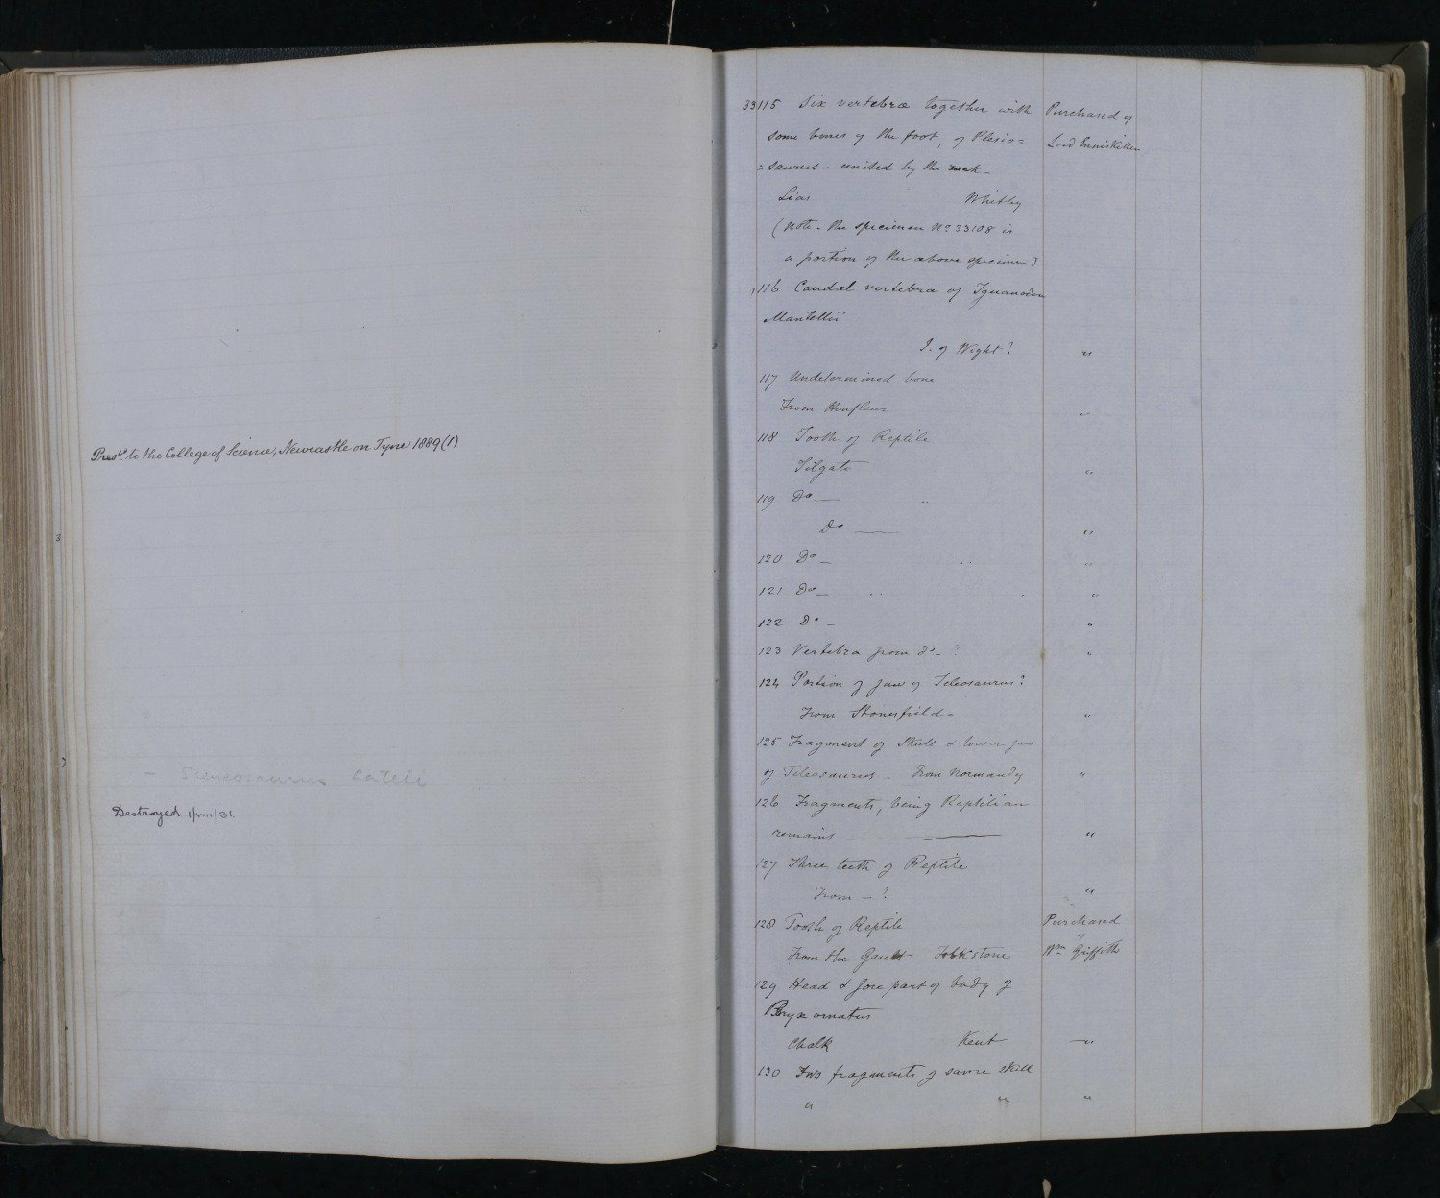 Presd to the College of Science, Newcastle on Tyne 1889 (1)
3
- Steneosaurus bateli
Destroyed 1/viii/31.
33115 Six vertebræ together with Purchased of
some bones of the foot, of Plesio= Lord Enniskillen
=saurus - united by the
Lias Whitby
(Note - the specimen No 33108 is
a portion of the above specimen)
116 Caudal vertebræ of Iguanodon
Mantellii
I. of Wight? "
117 Undetermined bone
From Honfleur "
118 Tooth of Reptile
Tilgate "
119 Do —
Do — "
120 Do — "
121 Do — "
122 Do — "
123 Vertebra from do - ? "
124 Portion of jaw of Teleosaurus?
From Stonesfield - "
125 Fragment of Skull & lower jaw
of Teleosaurus - From Normandy "
126 Fragments, being Reptilian
remains — "
127 Three teeth of Reptile
From - ? "
128 Tooth of Reptile Purchased
From the Gault - Folkstone Wm Griffith
129 Head & fore part of body of
Beryx ornatus
Chalk Kent — "
130 Two fragments of same skull
" " "